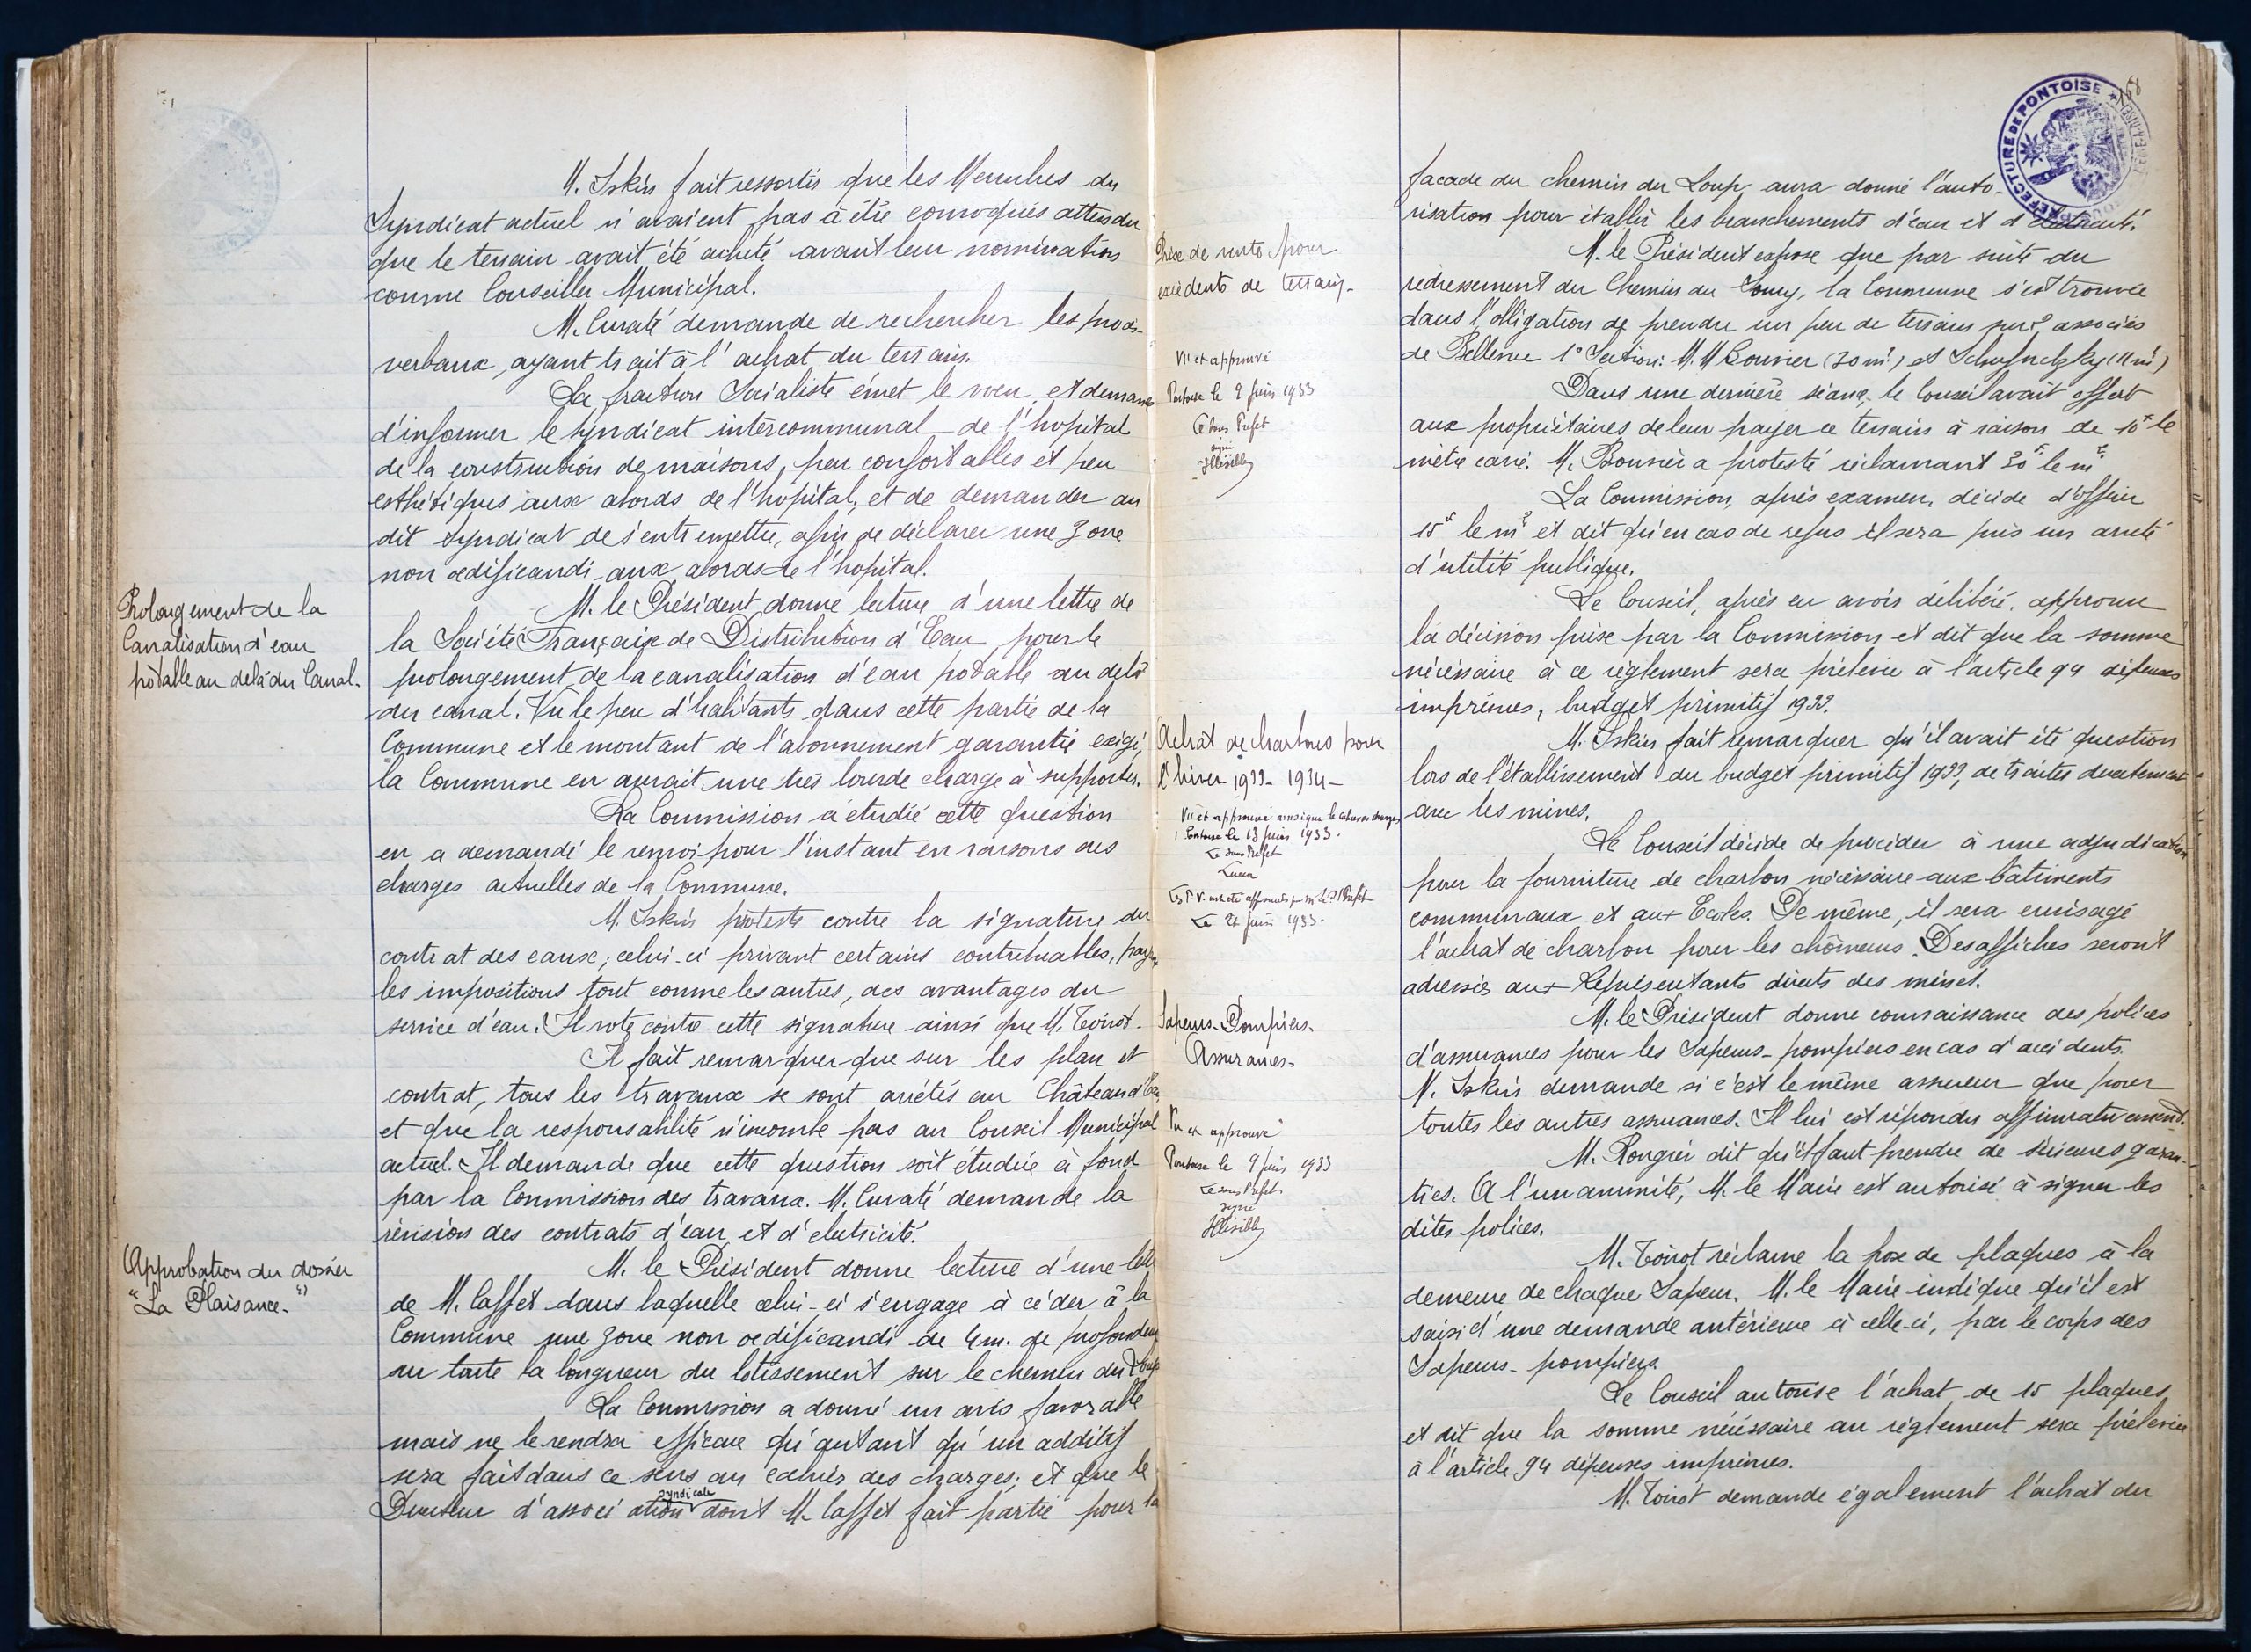 M. Iskin fait ressortir que les Membres du
Syndicat actuel n'avaient pas à être convoqués attendu
que le terrain avait été acheté avant leur nomination
comme Conseiller Municipal.
M. Curaté demande de rechercher les procès-
verbaux, ayant trait à l'achat du terrain.
La fraction Socialiste émet le voeu, et demande
d'informer le syndicat intercommunal de l'hopital
de la construction de maisons, peu confortables et peu
esthétiques aux abords de l'hopital, et de demander au
dit Syndicat de s'entremettre, afin de déclarer une zone
non œdificandi aux abords de l'hopital.
Prolongement de la
Canalisation d'eau
potable au delà du Canal.
M. le Président donne lecture d'une lettre de
la Société Française de Distribution d'Eau pour le
prolongement de la canalisation d'eau potable au delà
du canal. Vu le peu d'habitants dans cette partie de la
Commune et le montant de l'abonnement garantie exigé,
la Commune en aurait une très lourde charge à supporter.
La Commission a étudié cette question
en a demandé le renvoi pour l'instant en raisons des
charges actuelles de la Commune.
M. Iskin proteste contre la signature du
contrat des eaux; celui-ci privant certains contribuables, payant
les impositions tout comme les autres, des avantages du
service d'eau. Il vote contre cette signature ainsi que M. Toirot.
Il fait remarquer que sur les plan et
contrat, tous les travaux se sont arrétés au Château d'Eau
et que la responsabilité n'incombe pas au Conseil Municipal
actuel. Il demande que cette question soit étudiée à fond
par la Commission des travaux. M. Curaté demande la
révision des contrats d'eau et d'électricité.
Approbation du dossier
"La Plaisance."
M. le Président donne lecture d'une lettre
de M. Caffet dans laquelle celui-ci s'engage à céder à la
Commune une zone non œdificandi de 4m. de profondeur
sur toute la longueur du lotissement sur le chemin du Loup
La Commission a donné un avis favorable
mais ne le rendra efficace qu'autant qu'un additif
sera fait dans ce sens au cahier des charges; et que le
syndicale
Directeur d'association dont M. Caffet fait partie pour la
SOUS-PREFECTURE DE PONTOISE
158
façade du chemin du Loup, aura donné l'auto-
risation pour établir les branchements d'eau et d'électricité.
Prise de vente pour
excédents de terrain.
Vu et approuvé
Pontoise le 9 Juin 1933
Le Sous Préfet
signé
Illisible
M. le Président expose que par suite du
redressement du Chemin du Loup, la Commune s'est trouvée
dans l'obligation de prendre un peu de terrain sur 2 associés
de Bellevue 1° Section: M.M Bonnier (30 m²) et (11 m²)
Dans une dernière séance, le Conseil avait offert
aux propriétaires de leur payer ce terrain à raison de 10f le
mètre carré. M. Bonnier a protesté réclamant 30f le m².
La Commission, après examen, décide d'offrir
15f le m² et dit qu'en cas de refus il sera pris un arreté
d'utilité publique.
Le Conseil, après en avoir délibéré, approuve
la décision prise par la Commission et dit que la somme
nécéssaire à ce règlement sera prélevée à l'article 94 dépenses
imprévues, budget primitif 1933.
Achat de charbons pour
l'hiver 1933-1934-
Vu et approuvé ainsi que le cahier des charges
Pontoise le 13 Juin 1933.
Le Sous Préfet
Les P.V. ont été approuvés par M. le S/Préfet
Le 24 Juin 1933.
M. Iskin fait remarquer qu'il avait été question
lors de l'établissement du budget primitif 1933, de traiter directement
avec les mines.
Le Conseil décide de procéder à une adjudication
pour la fourniture de charbon nécéssaire aux bâtiments
communaux et aux Ecoles. De même, il sera envisagé
l'achat de charbon pour les chômeurs. Des affiches seront
adressées aux Représentants directs des mines.
Sapeurs-Pompiers.
Assurances.
Vu et approuvé
Pontoise le 9 Juin 1933
Le Sous Préfet
signé
Illisible
M. le Président donne connaissance des polices
d'assurances pour les Sapeurs-pompiers en cas d'accidents.
M. Iskin demande si c'est le même assureur que pour
toutes les autres assurances. Il lui est répondu affirmativement.
M. Rongier dit qu'il faut prendre de sérieuses garan-
ties. A l'unanimité, M. le Maire est autorisé à signer les
dites polices.
M. Toirot réclame la pose de plaques à la
demeure de chaque Sapeur. M. le Maire indique qu'il est
saisi d'une demande antérieure à celle-ci, par le corps des
Sapeurs-pompiers.
Le Conseil autorise l'achat de 15 plaques,
et dit que la somme nécéssaire au règlement sera prélevée
à l'article 94 dépenses imprévues.
M. Toirot demande également l'achat du